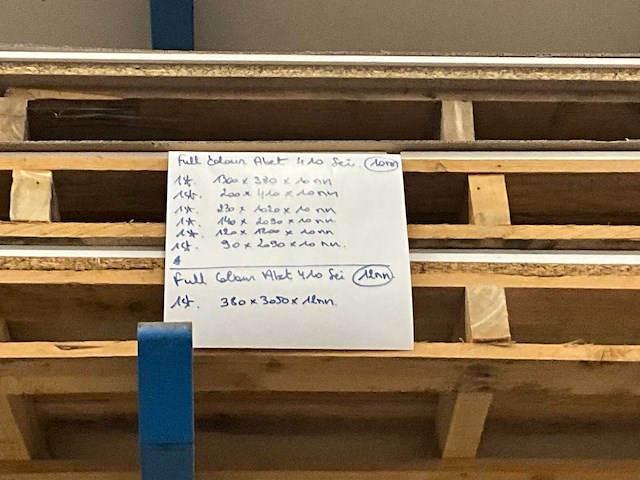 Full Colour Abet 410 Sei 10mm
1st. 1300 x 380 x 10mm
1st. 200 x 410 x 10mm
1st. 230 x 1020 x 10mm
1st. 140 x 2090 x 10mm
1st. 120 x 1200 x 10mm
1st. 90 x 2090 x 10mm.
Full Colour Abet 410 Sei 12mm
1st. 380 x 3050 x 12mm.